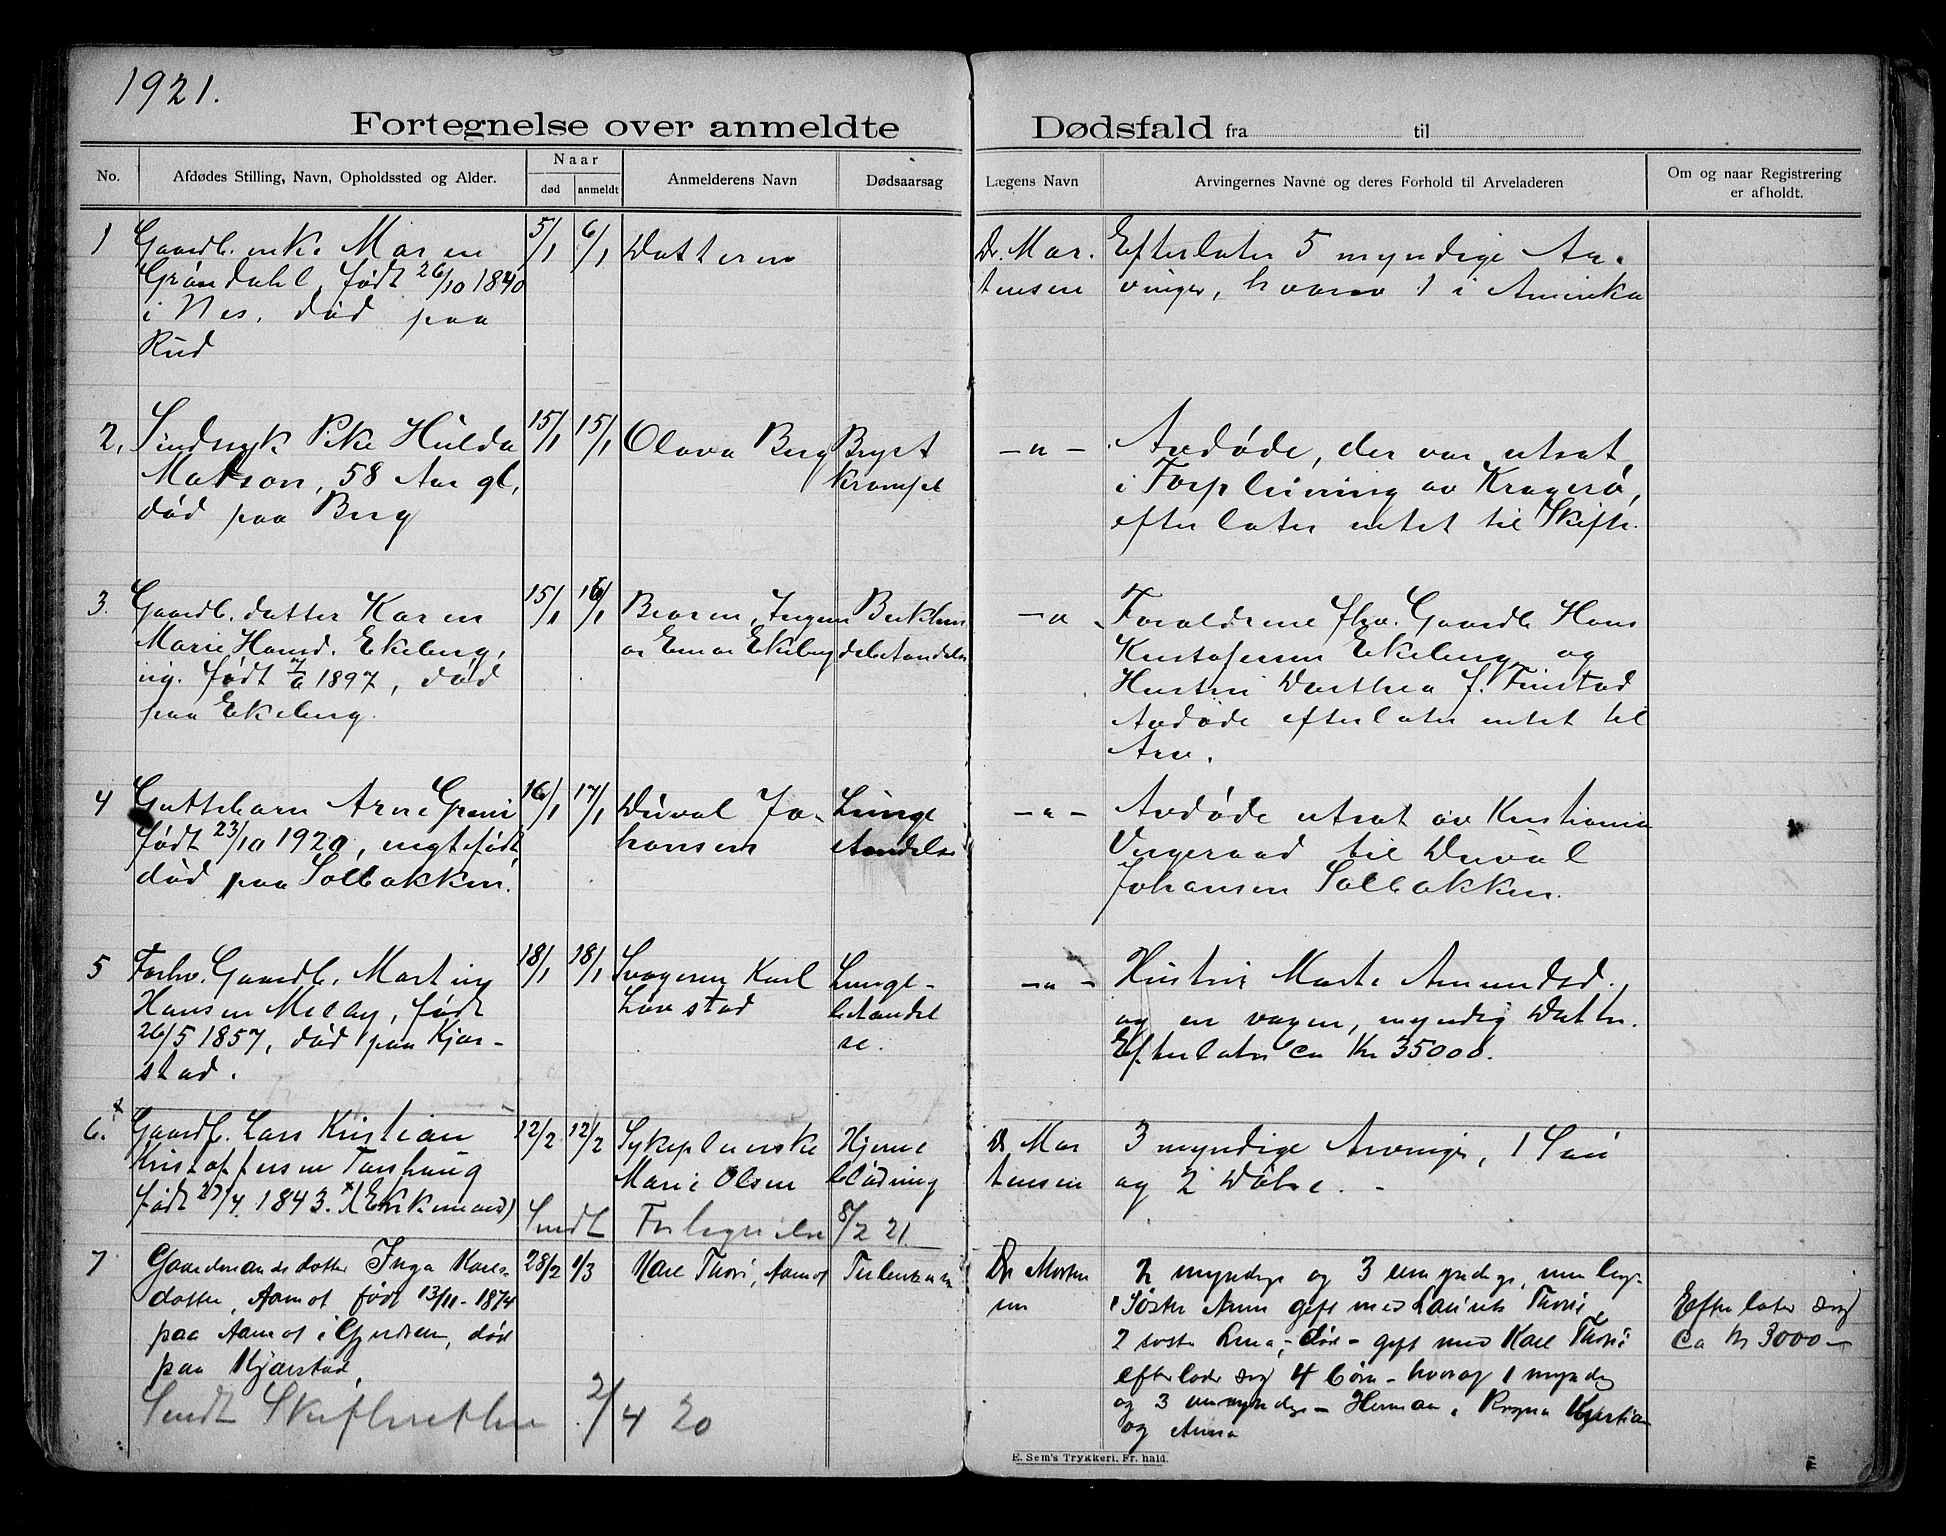 1921.
Fortegnelse over anmeldte Dødsfald fra til
No.
Afdødes Stilling, Navn, Opholdssted og Alder.
Naar
død
anmeldt
Anmelderens Navn
Dødsaarsag
Lægens Navn
Arvingernes Navne og deres Forhold til Arveladeren
Om og naar Registrering
er afholdt.
1
Gaardb. enke Maren
Grøndahl, født 26/10 1840
i Nes, død paa
Rud
5/1
6/1
Datteren
Dr. Mar.
tensen
Efterlater 5 myndige Ar.
vinger, hvorav 1 i Amerika
2.
Sindsyk Pike Hulda
Matson, 58 Aar gl.
død paa Berg
15/1
15/1
Olava Berg
Bryst
krampe
-"-
Avdøde, der var utsat
i Forpleining av Kragerø,
efterlater intet til Skifte.
3.
Gaardb. datter Karen
Marie Hansd. Ekeberg,
ug. født 1897, død
paa Ekeberg.
15/1
16/1
Ekeberg
-"-
Forældrene fhv. Gaardb. Hans
Kristofersen Ekeberg og
Hustru Dorthea f. Finstad
Avdøde efterlater intet til
Arv.
4
Guttebarn Arne
født 23/10 1920, uegtefødt,
død paa Solbakken.
16/1
17/1
Duval Jo-
hansen
Lunge
betændelse
-"-
Avdøde utsat av Kristiania
Vergeraad til Duval
Johansen Solbakken.
5
Forhv. Gaardb. Martin
Hansen Melby, født
26/5 1857, død paa Kjær-
stad.
18/1
18/1
Svogeren Karl
Løvstad
Lunge-
betændel
se.
-"-
Hustru Marte Amundsd.
og en voxen, myndig Datter.
Efterlater ca Kr 35000.
6.
Gaardb. Lars Kristian
Kristoffersen Tørshaug
født 27/4 1843. x (Enkemand)
12/2
12/2
Sykepleierske
Marie Olsen
Hjerne
blødning
Dr Mar
tensen
3 myndige Arvinger, 1 Søn
og 2 Døtre. -
Sendt 8/2 21.
7
Gaardmandsdatter Inga Karls-
datter, Aamot født 13/11-1874
paa Aamot i Gjerdrum, død
paa Kjærstad,
28/2
1/3
Karl Thori, Aamot
Tuberkulose
Dr Marten
sen
2 myndige og 3 umyndige,
1 Søster Anne gift med Laurits Thori,
2 søster Lina, - død - gift med Karl Thori
efterlader sig 4 Børn - hvoraf 1 myndig
og 3 umyndige - Herman, Ragna Kristian
og Anna
Efterlater sig
ca kr 3000-
Sendt Skifteretten 2/4 20
E. Sem's Trykkeri, Fr. hald.